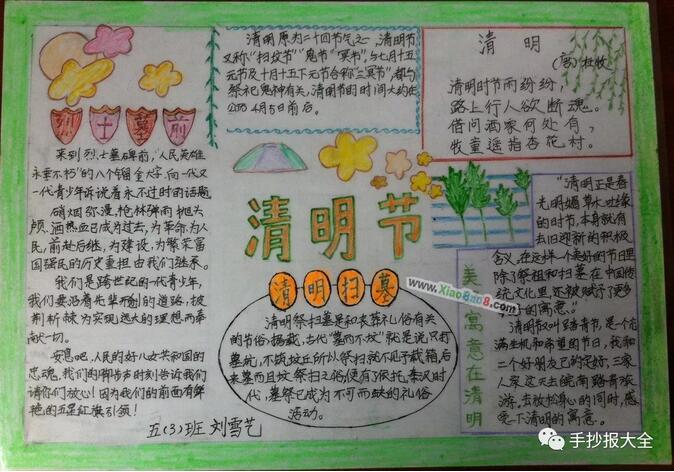 烈士墓前
来到烈士墓碑前，"人民英雄
永垂不朽"的八个镏金大字，向一代又
一代青少年诉说着永不过时的话题
硝烟弥漫，枪林弹雨，抛头
颅，洒热血已成为过去，为革命，为人
民，前赴后继，为建设，为繁荣富
国强民的历史重担由我们继承。
我们是跨世纪的一代青少年，
我们要沿着先辈开创的道路，披
荆斩棘为实现远大的理想而奉
献一切。
安息吧，人民的好儿女共和国的
忠魂，我们的脚步声时刻告诉我们
请你们放心！因为我们的前面有鲜
艳的五星红旗引领！
五(3)班 刘雪艺
清明原为二十四节气之一，清明节
又称"扫坟节""鬼节""冥节"，与七月十五
元节及十月十五下元节合称"三冥节"，都与
祭祀鬼神有关，清明节时间大约在
公历4月5日前后。
清明
杜牧
清明时节雨纷纷，
路上行人欲断魂。
借问酒家何处有，
牧童遥指杏花村。
清明节
清明扫墓
清明祭扫墓是和丧葬礼俗有关
的节俗，据载，古代"墓而不坟"就是说只打
墓坑，不筑坟丘所以祭扫就不见于载籍后
来墓而且坟，祭扫之俗便有了依托，秦汉时
代，墓祭已成为不可而缺的礼俗
活动。
美好寓意在清明
"清明正是春
光明媚草木吐绿
的时节，本身就有
去旧迎新的积极
含义，在这样一个美好的节日里
除了祭祖和扫墓，在中国传
统文化里，还被赋予了更多
美好的寓意。"
清明节又叫踏青节，是一个充
满生机和希望的节日，我和
二个好朋友已约定好，三家
人家这天去皖南踏青旅
游，去放松身心的同时，感
受一下清明的寓意。
www.XiaoBao8.com
手抄报大全